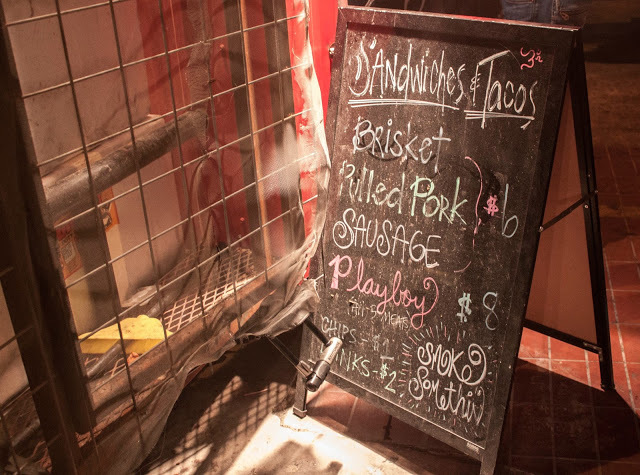 SANdwiches & Tacos 3½
BRisket
Pulled PORK
SAUSAGE
$6
Playboy $8
CHIPS -
DRINKS - $2
SMOKe
Somethin'